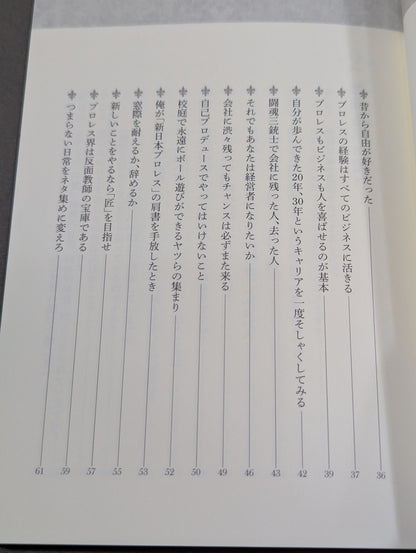 昔から自由が好きだった 36
プロレスの経験はすべてのビジネスに活きる 37
プロレスもビジネスも人を喜ばせるのが基本 39
自分が歩んできた20年、30年というキャリアを一度そしゃくしてみる 42
闘魂三銃士で会社に残った人、去った人 43
それでもあなたは経営者になりたいか 46
会社に渋々残ってもチャンスは必ずまた来る 49
自己プロデュースでやってはいけないこと 50
校庭で永遠にボール遊びができるヤツらの集まり 52
俺が「新日本プロレス」の肩書を手放したとき 53
窓際を耐えるか、辞めるか 53
新しいことをやるなら「匠」を目指せ 55
プロレス界は反面教師の宝庫である 57
つまらない日常をネタ集めに変えろ 59
61